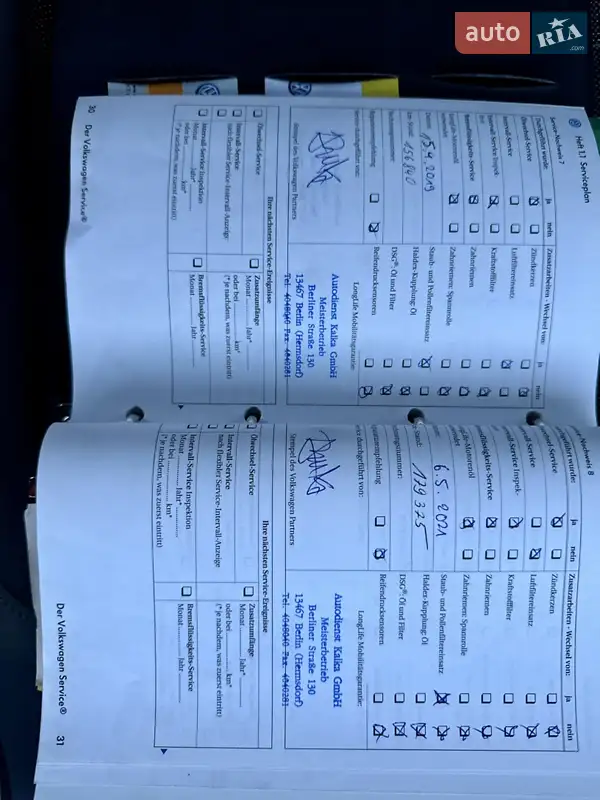 auto RIA .com
Heft 1.1 Serviceplan
Service-Nachweis 7
Durchgeführt wurde:
ja
nein
Zusatzarbeiten - Wechsel von:
ja
nein
Ölwechsel-Service
Zündkerzen
Intervall-Service
Luftfiltereinsatz
Intervall-Service Inspek-
tion
Kraftstofffilter
Bremsflüssigkeits-Service
Zahnriemen
Zahnriemen: Spannrolle
Datum: 15.4.2019
Staub- und Pollenfiltereinsatz
km-Stand: 156 840
Haldex-Kupplung: Öl
DSG®: Öl und Filter
Reifendrucksensoren
Service durchgeführt von:
LongLife Mobilitätsgarantie:
Autodienst Kalka GmbH
Meisterbetrieb
Berliner Straße 130
13467 Berlin (Hermsdorf)
Tel. 4048040 Fax 4040281
Stempel des Volkswagen Partners
Ihre nächsten Service-Ereignisse
Ölwechsel-Service
Zusatzumfänge
Monat Jahr*
oder bei km*
(* je nachdem, was zuerst eintritt)
Intervall-Service
nach flexibler Service-Intervall-Anzeige
Intervall-Service Inspektion
Monat Jahr*
oder bei km*
(* je nachdem, was zuerst eintritt)
Bremsflüssigkeits-Service
Monat Jahr
30
Der Volkswagen Service®
-Nachweis 8
geführt wurde:
ja
nein
Zusatzarbeiten - Wechsel von:
ja
nein
Zündkerzen
Luftfiltereinsatz
Kraftstofffilter
Zahnriemen
Zahnriemen: Spannrolle
6.5.2021
Staub- und Pollenfiltereinsatz
179 375
Haldex-Kupplung: Öl
DSG®: Öl und Filter
Reifendrucksensoren
durchgeführt von:
LongLife Mobilitätsgarantie:
Autodienst Kalka GmbH
Meisterbetrieb
Berliner Straße 130
13467 Berlin (Hermsdorf)
Tel. 4048040 Fax 4040281
Stempel des Volkswagen Partners
Ihre nächsten Service-Ereignisse
Ölwechsel-Service
Zusatzumfänge
Monat Jahr*
oder bei km*
(* je nachdem, was zuerst eintritt)
Intervall-Service
nach flexibler Service-Intervall-Anzeige
Intervall-Service Inspektion
Monat Jahr*
oder bei km*
(* je nachdem, was zuerst eintritt)
Bremsflüssigkeits-Service
Monat Jahr
Der Volkswagen Service®
31